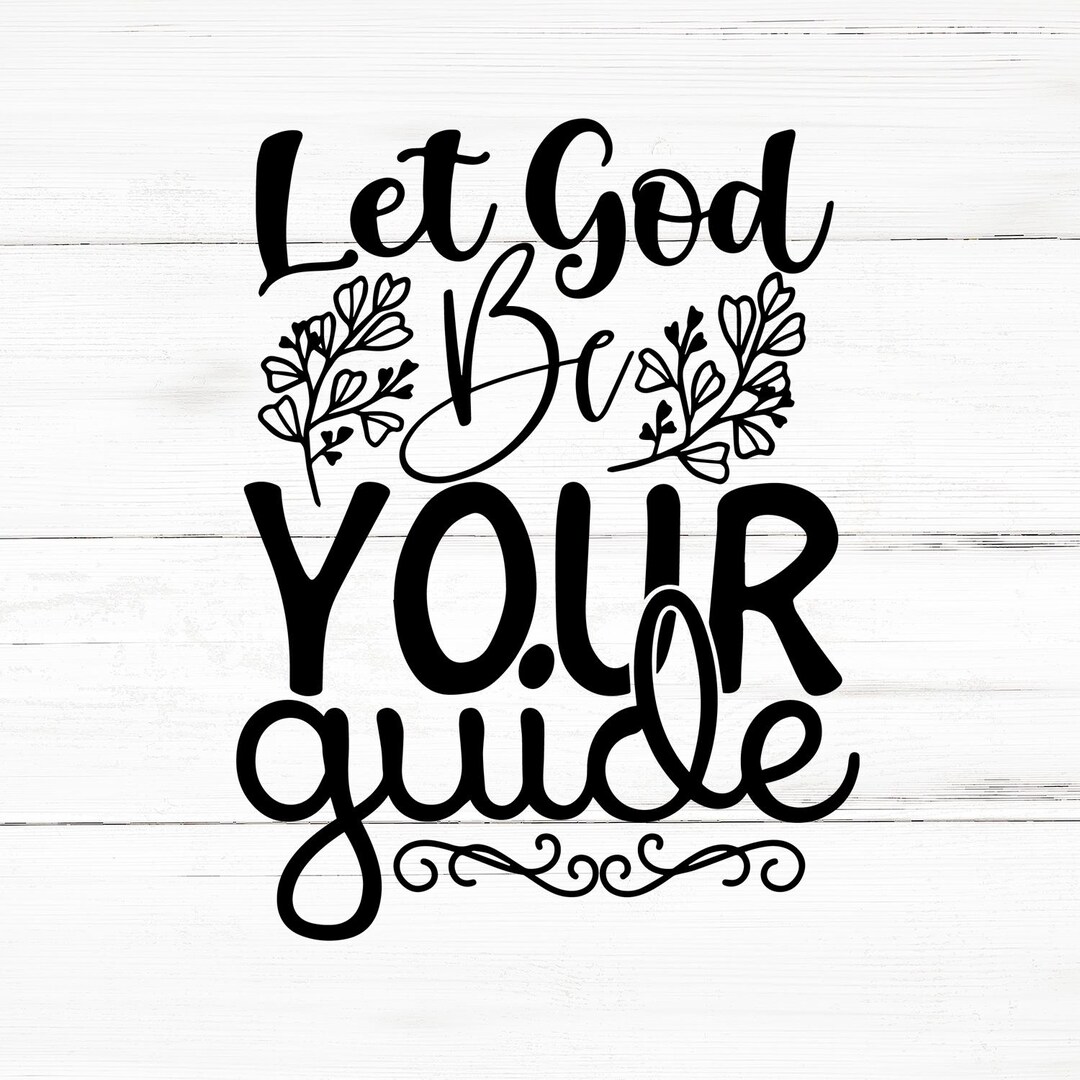 Let God
Be
YOUR
guide